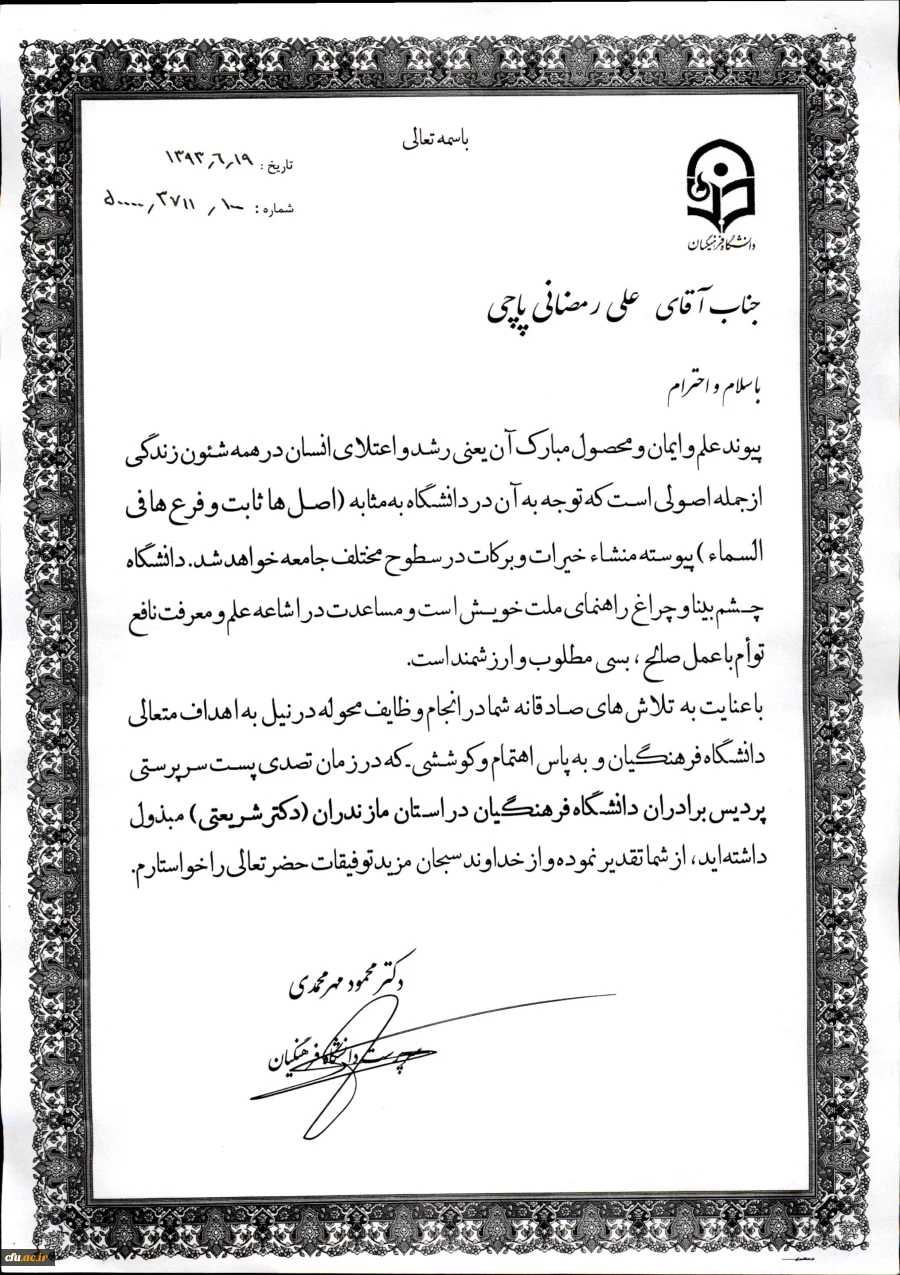 باسمه تعالی
تاریخ: ۱۳۹۳٫۶٫۱۹
شماره: ۵۰۰۰۰٫۳۷۱۱٫۱۰۰
دانشگاه فرهنگیان
جناب آقای علی رمضانی پاچی
با سلام و احترام
پیوند علم و ایمان و محصول مبارک آن یعنی رشد و اعتلای انسان در همه شئون زندگی
از جمله اصولی است که توجه به آن در دانشگاه به مثابه (اصل ها ثابت و فرع ها فی
السماء) پیوسته منشاء خیرات و برکات در سطوح مختلف جامعه خواهد شد. دانشگاه
چشم بینا و چراغ راهنمای ملت خویش است و مساعدت در اشاعه علم و معرفت نافع
توأم با عمل صالح، بسی مطلوب و ارزشمند است.
با عنایت به تلاش های صادقانه شما در انجام وظایف محوله در نیل به اهداف متعالی
دانشگاه فرهنگیان و به پاس اهتمام و کوششی که در زمان تصدی پست سرپرستی
پردیس برادران دانشگاه فرهنگیان در استان مازندران (دکتر شریعتی) مبذول
داشته اید، از شما تقدیر نموده و از خداوند سبحان مزید توفیقات حضرتعالی را خواستارم.
دکتر محمود مهرمحمدی
سرپرست دانشگاه فرهنگیان
cfu.ac.ir